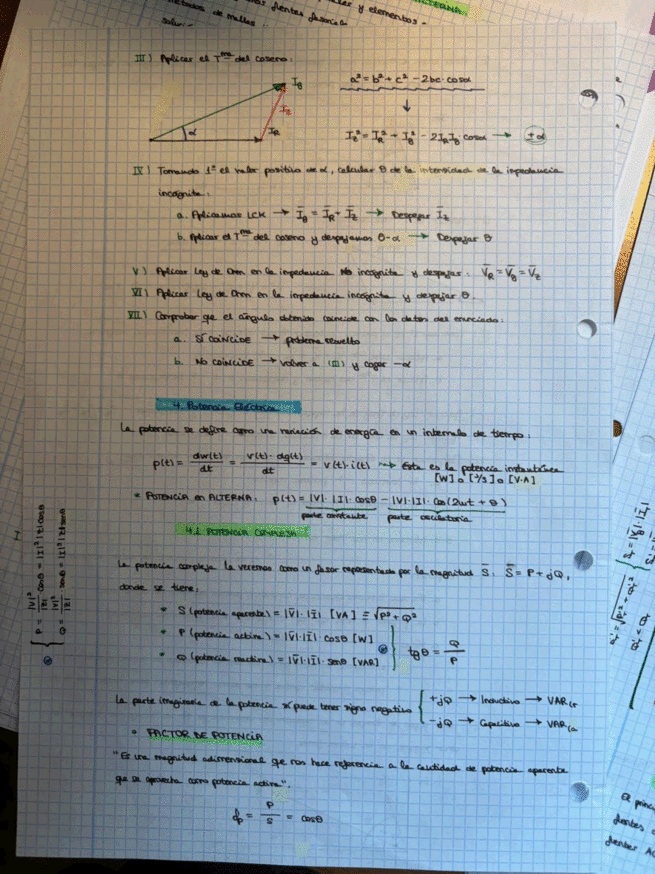 III) Aplicar el Tma del coseno:
a² = b² + c² - 2bc · cosα
I_g
I_z
α
I_R
I_z² = I_R² + I_g² - 2I_R I_g cosα → +α
IV) Tomando 1º el valor positivo de α, calcular θ de la intensidad de la impedancia
incógnita:
a. Aplicamos LCK → I̅_g = I̅_R + I̅_z → Despejar I̅_z
b. Aplicar el Tma del coseno y despejamos θ-α → Despejar θ
V) Aplicar Ley de Ohm en la impedancia No incógnita y despejar: V̅_R = V̅_g = V̅_z
VI) Aplicar Ley de Ohm en la impedancia incógnita y despejar θ.
VII) Comprobar que el ángulo obtenido coincide con los datos del enunciado:
a. SÍ COINCIDE → problema resuelto
b. NO COINCIDE → volver a (III) y coger -α
4. Potencia Eléctrica
La potencia se define como una variación de energía en un intervalo de tiempo:
p(t) = dw(t)/dt = v(t) · dq(t)/dt = v(t) · i(t) → ésta es la potencia instantánea
[W] o [J/s] o [V·A]
* POTENCIA en ALTERNA: p(t) = |V| · |I| · cosθ - |V| · |I| · cos(2wt + θ)
parte constante parte oscilatoria
4.1. POTENCIA COMPLEJA
La potencia compleja la veremos como un fasor representado por la magnitud S̅: S̅ = P + jQ,
donde se tiene:
* S (potencia aparente) = |V̅| · |I̅| [VA] ≡ √P² + Q²
* P (potencia activa) = |V̅| · |I̅| · cosθ [W]
* Q (potencia reactiva) = |V̅| · |I̅| · senθ [VAR]
tgθ = Q/P
P = |V|²/|Z| cosθ = |I|² |Z| cosθ
Q = |V|²/|Z| senθ = |I|² |Z| senθ
La parte imaginaria de la potencia sí puede tener signo negativo
+jQ → Inductivo → VAR
-jQ → Capacitivo → VAR
• FACTOR DE POTENCIA
"Es una magnitud adimensional que nos hace referencia a la cantidad de potencia aparente
que se aprovecha como potencia activa".
fp = P/S = cosθ